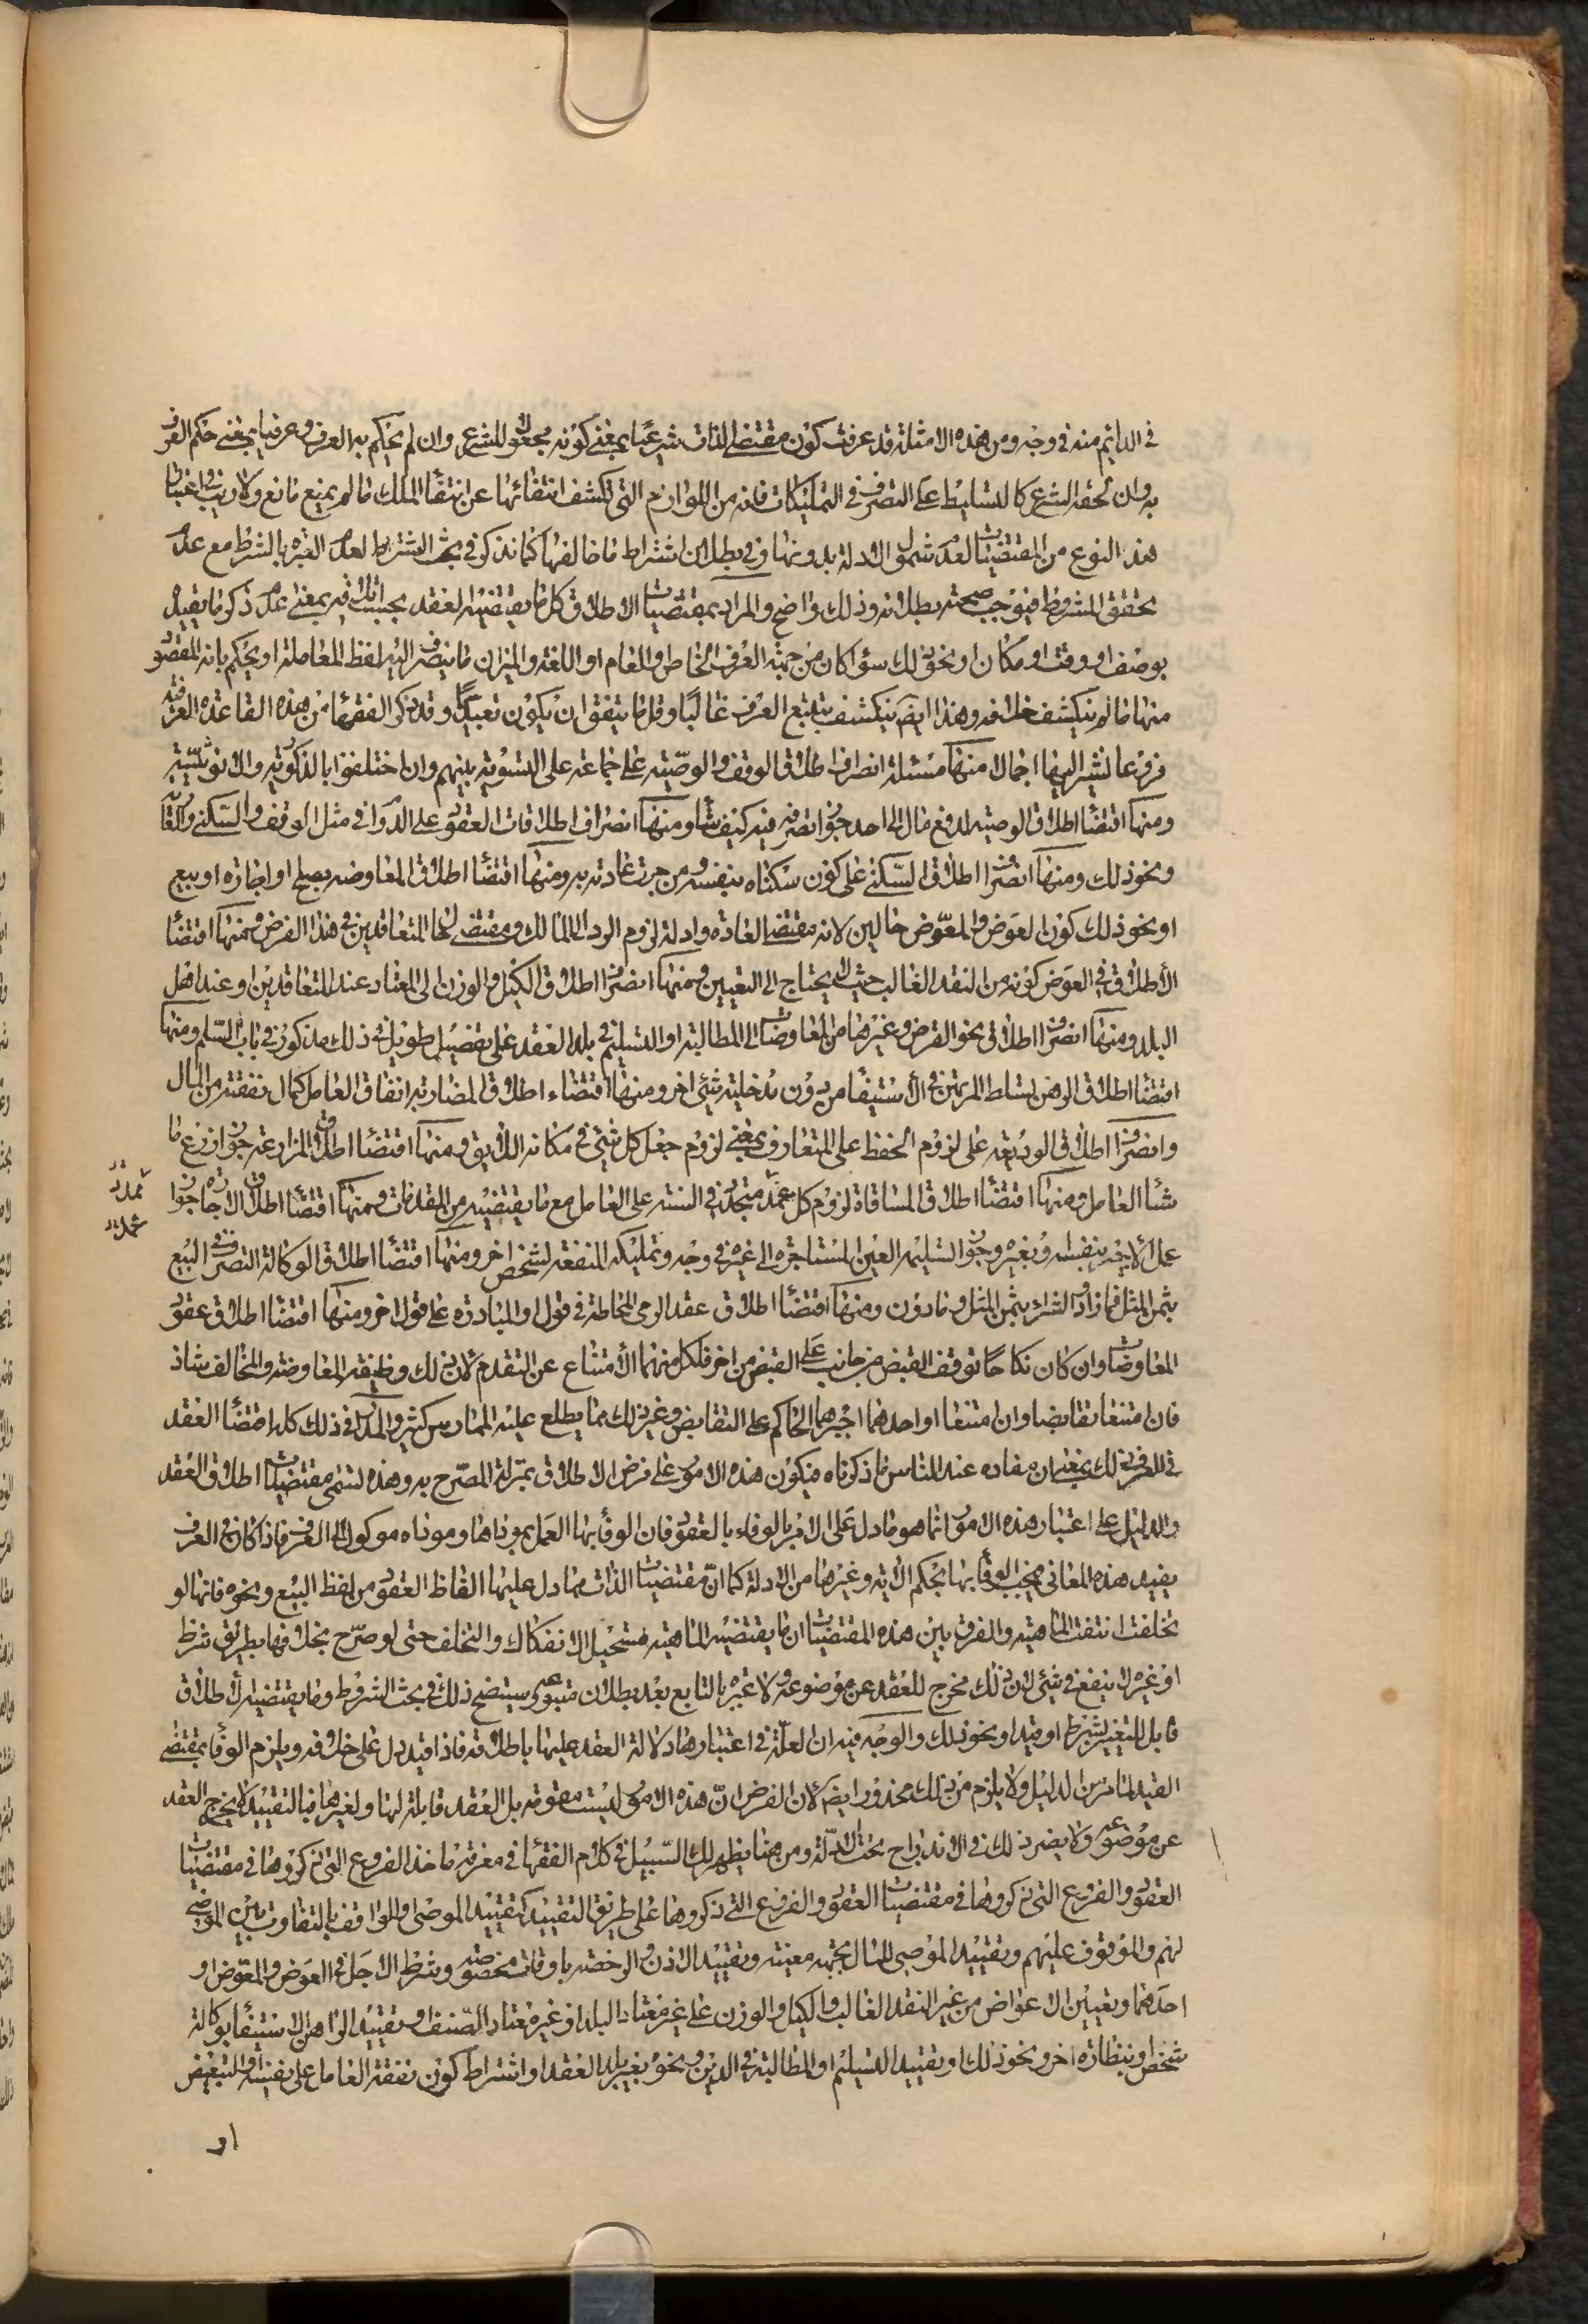 في الدائم منه في وجه ومن هذه الامثلة قد عرفت كون مقتضى الذات شرعيا بمعنى كونه مجعولا للشرع وان لم يحكم به العرف وعرفيا بمعنى حكم العرف
به وان لحقه الشرع كالتسليط على التصرف في التمليكات فانه من اللوازم التي تكشف انتفائها عن انتفاء الملك ما لم يمنع مانع ولا ريب في اعتبار
هذا النوع من المقتضيات لعدم شمول الادلة بدونها وفي بطلان اشتراط ما خالفها كما نذكر في بحث الشرائط لعدم العبرة بالشرط مع عدم
تحقق المشروط فيوجب صحته بطلانه وذلك واضح والمراد بمقتضيات الاطلاق كل ما يقتضيه العقد بحسب اطلاقه بمعنى عدم ذكر ما يقيده
بوصف او وقت او مكان او نحو ذلك سواء كان من جهة العرف الخاص والعام او اللغة والميزان ما ينصرف اليه لفظ المعاملة او يحكم بانه المقصود
منها ما لم ينكشف خلافه وهذا ايضا ينكشف بتتبع العرف غالبا وقل ما يتفق ان يكون تعبديا وقد ذكر الفقهاء من هذه القاعدة العرفية
فروعا نشير اليها اجمالا منها مسئلة انصراف اطلاق الوقف والوصية على جماعة على التسوية بينهم وان اختلفوا بالذكورية والانوثية
ومنها اقتضاء اطلاق الوصية لدفع مال الى احد جواز تصرفه فيه كيف شاء ومنها انصراف اطلاقات العقود على الدوام في مثل الوقف والسكنى والنكاح
ونحو ذلك ومنها انصراف اطلاق السكنى على كون سكناه بنفسه ومن جرت عادته به ومنها اقتضاء اطلاق المعاوضة بصلح او اجارة او بيع
او نحو ذلك كون العوض والمعوض حالين لانه مقتضى العادة وادلة لزوم الرد الى المالك ومقتضى لحال المتعاقدين في هذا الفرض ومنها اقتضاء
الاطلاق في العوض كونه من النقد الغالب حيث لا يحتاج الى التعيين ومنها انصراف اطلاق الكيل والوزن الى المعتاد عند المتعاقدين او عند اهل
البلد ومنها انصراف اطلاق نحو القرض وغيرها من المعاوضات الى المطالبة او التسليم في بلد العقد على تفصيل طويل في ذلك مذكور في باب السلم ومنها
اقتضاء اطلاق الرهن تسلط المرتهن في الاستيفاء من دون مدخلية شيء اخر ومنها اقتضاء اطلاق المضاربة انفاق العامل كمال نفقته من المال
وانصراف اطلاق الوديعة على لزوم الحفظ على المتعارف بمعنى لزوم جعل كل شيء في مكانه اللايق ومنها اقتضاء اطلاق المزارعة جواز زرع ما
شاء العامل ومنها اقتضاء اطلاق المساقاة لزوم كل عمل متجدد في السنة على العامل مع ما يقتضيه من المقدمات ومنها اقتضاء اطلاق الاجارة جواز
عمل الاجير بنفسه وبغيره وجواز تسليم العين المستاجرة الى غيره في وجه وتمليك المنفعة لشخص اخر ومنها اقتضاء اطلاق الوكالة التصرف في البيع
بثمن المثل فما زاد والشراء بثمن المثل وما دون ومنها اقتضاء اطلاق عقد الرمي المخاطة في قول والمبادرة على قول اخر ومنها اقتضاء اطلاق عقود
المعاوضات وان كان نكاحا توقف القبض من جانب على القبض من اخر فلكل منهما الامتناع عن التقدم لان ذلك وظيفة المعاوضة والمخالف شاذ
فان امتنعا تقابضا وان امتنعا او احدهما اجبرهما الحاكم على التقابض وغير ذلك مما يطلع عليه الممارس كثير والمدرك في ذلك كله اقتضاء العقد
في العرف ذلك بمعنى ان مفاده عند الناس ما ذكرناه فيكون هذه الامور على فرض الاطلاق بمنزلة المصرح به وهذه تسمى مقتضيات اطلاق العقد
والدليل على اعتبار هذه الامور انما هو ما دل على الامر بالوفاء بالعقود فان الوفاء بها العمل بموداها وموداه موكول الى العرف فاذا كان في العرف
يفيد هذه المعاني فيجب الوفاء بها بحكم الاية وغيرها من الادلة كما ان مقتضيات الذات مما دل عليها الفاظ العقود من لفظ البيع ونحوه فانها لو
تخلفت انتفت الماهية والفرق بين هذه المقتضيات ان ما يقتضيه الماهية مستحيل الانفكاك والتخلف حتى لو صرح بخلافها بطريق شرط
او غيره لا ينفع في شيء لان ذلك مخرج للعقد عن موضوعه ولا عبرة بالتابع بعد بطلان متبوعه وسيتضح ذلك في بحث الشروط وما يقتضيه الاطلاق
قابل للتغير بشرط او قيد او نحو ذلك والوجه فيه ان العلة في اعتبارها دلالة العقد عليها باطلاقه فاذا قيد دل على خلافه ويلزم الوفاء بمقتضى
القيد لما مر من الدليل ولا يلزم من ذلك محذور ايضا لان الفرض ان هذه الامور ليست مقومة بل العقد قابلة لها ولغيرها فبالتقييد لا يخرج العقد
عن موضوعه ولا يضر ذلك في الاندراج تحت الادلة ومن هنا يظهر لك السبيل في كلام الفقهاء في معرفة ماخذ الفروع التي ذكروها في مقتضيات
العقود والفروع التي ذكروها في مقتضيات العقود والفروع التي ذكروها على طريق التقييد كتقييد الموصى والواقف بالتفاوت بين الموصى
لهم والموقوف عليهم وتقييد الموصي المال بجهة معينة وتقييد الاذن والرخصة باوقات مخصوصة وشرط الاجل في العوض والمعوض او
احدهما وتعيين الاعواض من غير النقد الغالب والكيل والوزن على غير معتاد البلد او غير معتاد الصنف وتقييد الراهن الاستيفاء بوكالة
شخص او بنظارة اخر ونحو ذلك او تقييد التسليم او المطالبة في الدين ونحوه بغير بلد العقد او اشتراط كون نفقة العامل على نفسه او التبعيض
او